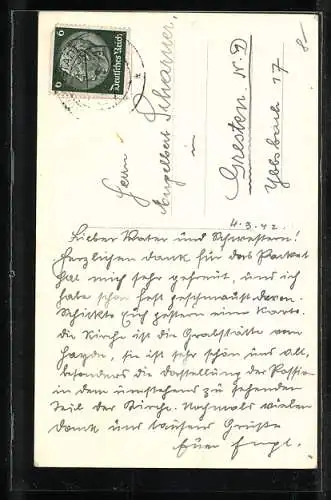 6 Deutsches Reich 6
Herrn
Engelbert Scharner,
in
Gresten N. D.
Ybbsbach 17
8-
4.3.42.
Lieber Vater und Schwestern!
Herzlichen Dank für das Packet
hat mich sehr gefreut, und ich
habe schon fest geschmaust davon.
Schickte Euch gestern eine Karte.
Die Kirche ist die Grabstätte von
Haydn, sie ist sehr schön und alt,
besonders die Darstellung der Passion
in dem umstehend zu sehenden
Teil der Kirche. Nochmals vielen
Dank und tausend Grüße
Euer Engl.